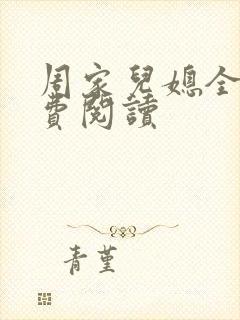 周家兒媳全
費閱讀
青堇